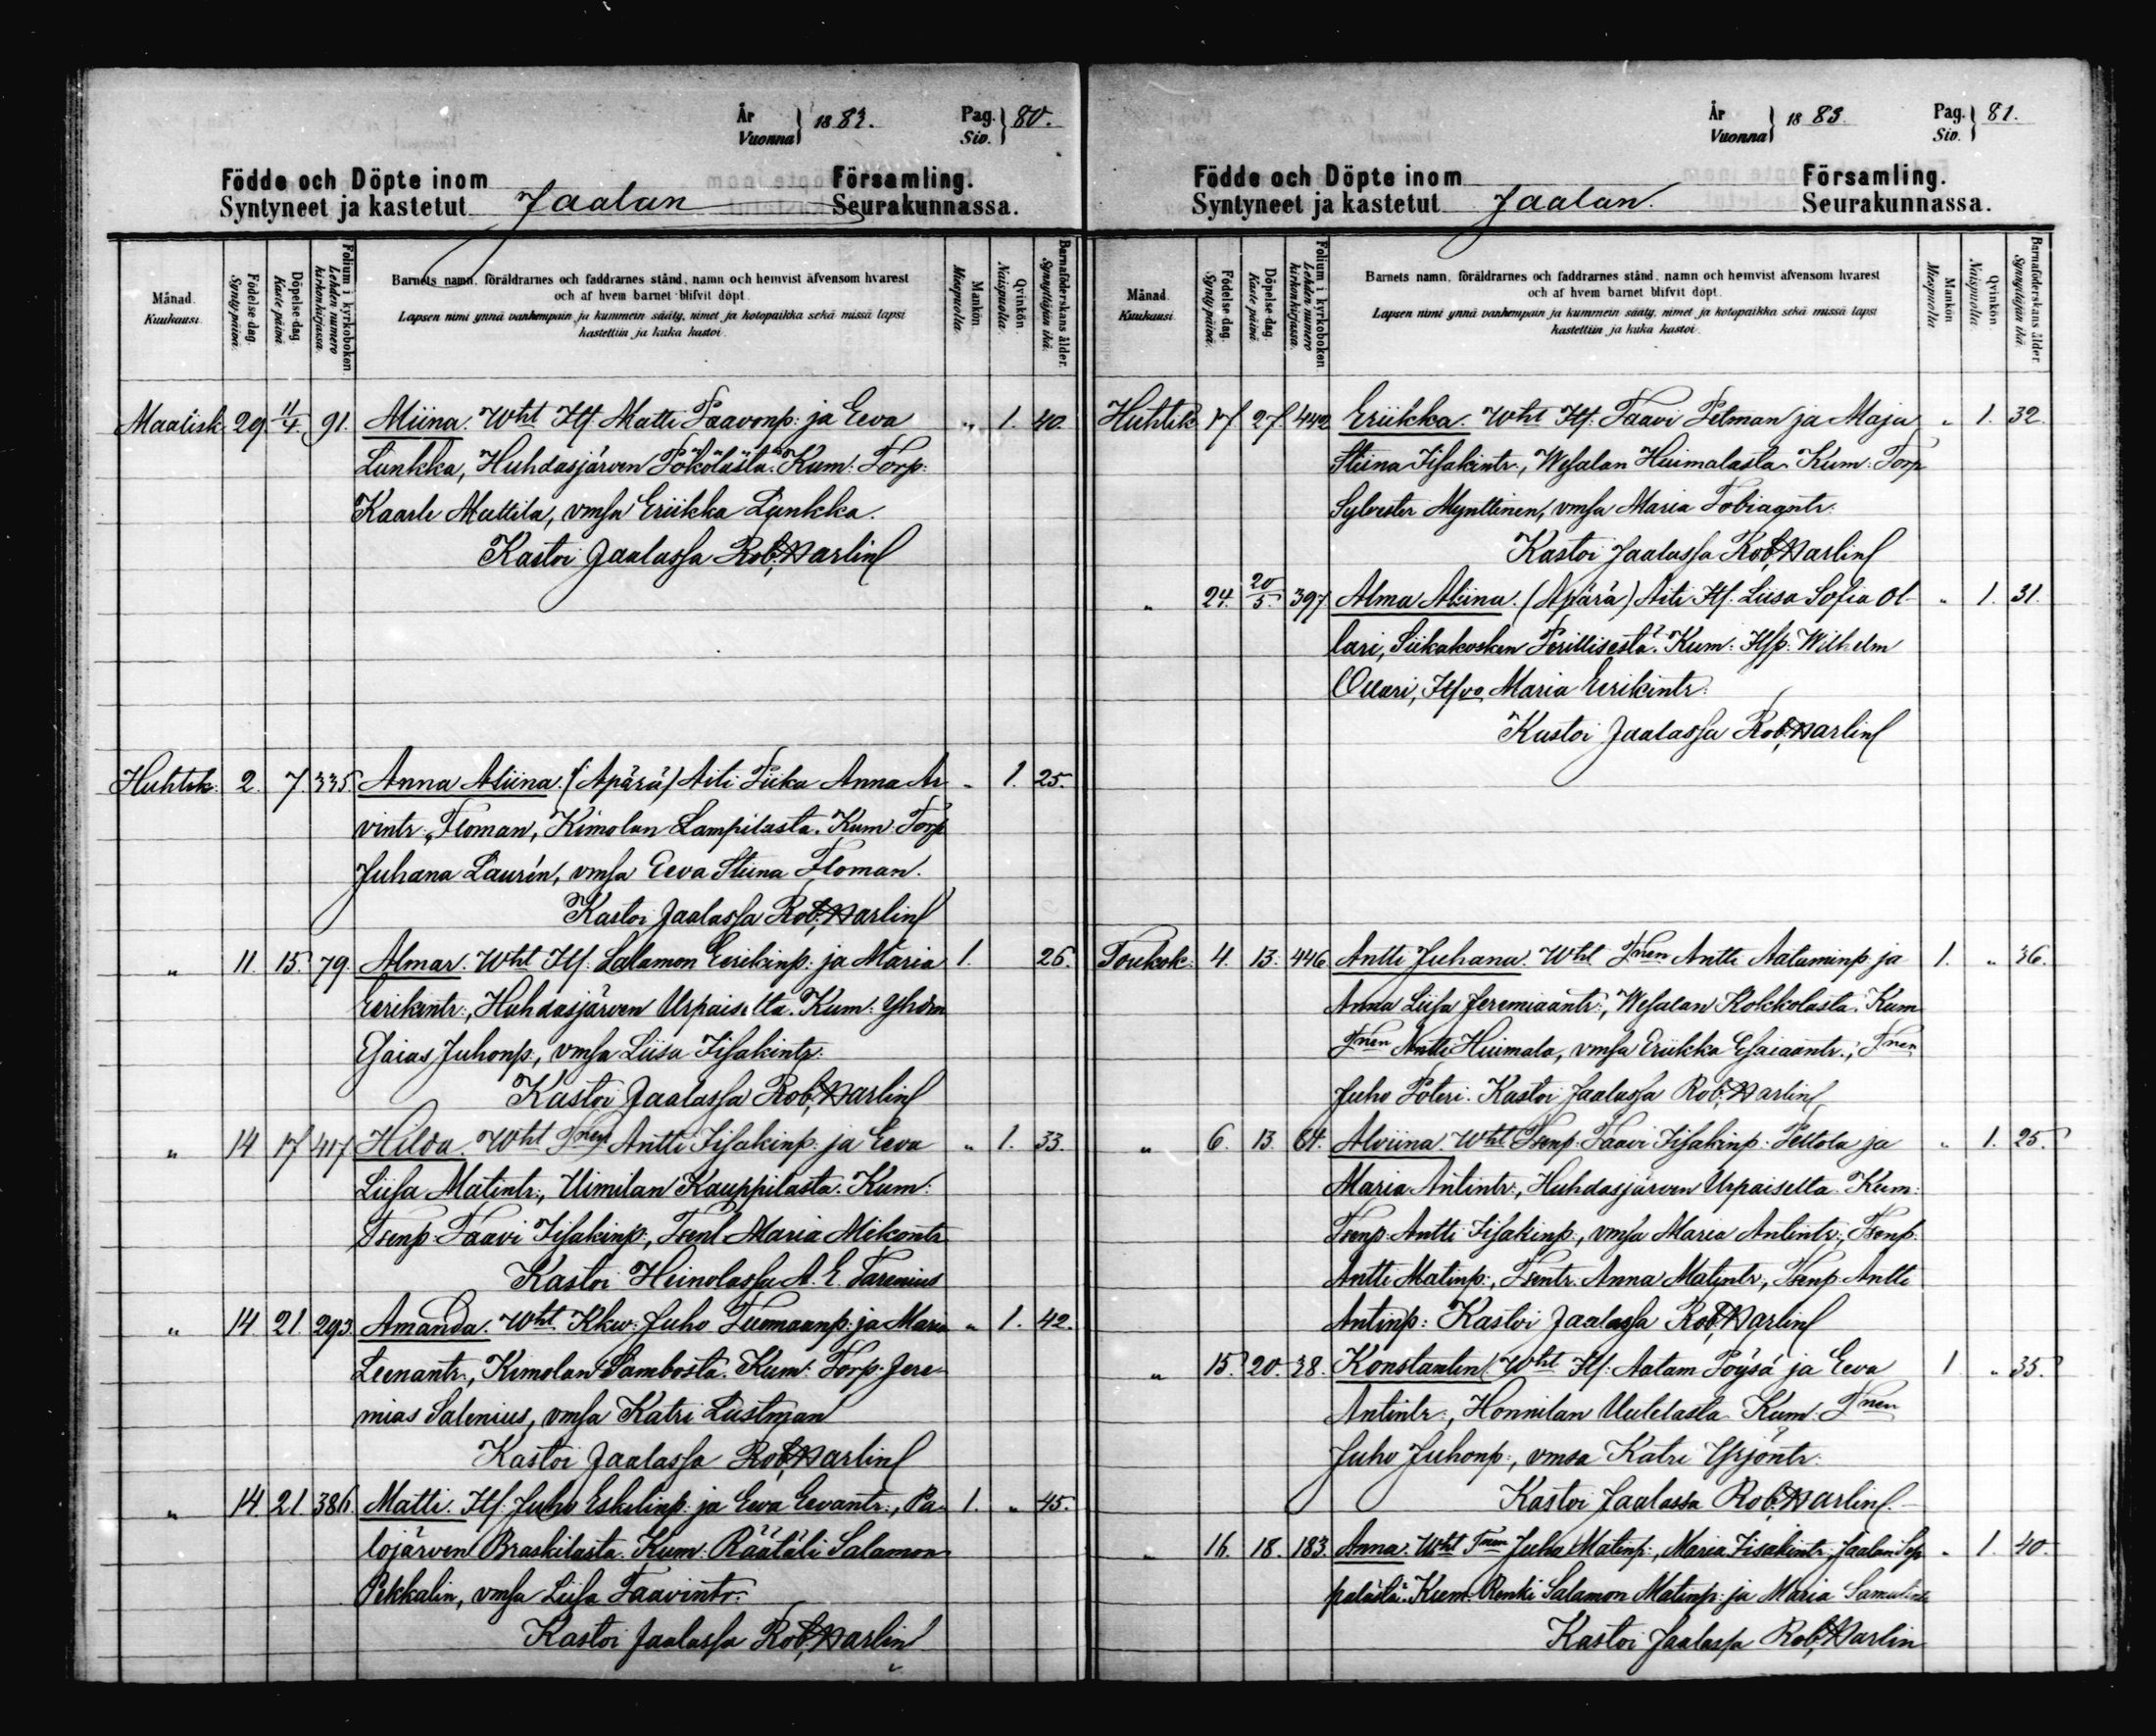 År
Vuonna } 1883.
Pag.
Siv. } 80.
Födde och Döpte inom Församling.
Syntyneet ja kastetut Jaalan Seurakunnassa.
Månad.
Kuukausi.
Födelse-dag.
Syntypäivä.
Döpelse-dag.
Kaste päivä.
Folium i kyrkoboken.
Lehden numero kirkonkirjassa.
Barnets namn, föräldrarnes och faddrarnes stånd, namn och hemvist äfvensom hvarest
och af hvem barnet blifvit döpt.
Lapsen nimi ynnä vanhempain ja kummein sääty, nimet ja kotopaikka sekä missä lapsi
kastettiin ja kuka kastoi.
Mankön
Miespuolta.
Qvinkön.
Naispuolta.
Barnaföderskans ålder.
Synnyttäjän ikä.
Maalisk. 29. 11/4. 91. Miina. Wht Itf. Matti Paavonp: ja Eeva " 1. 40.
Lunkka, Huhdasjärven Pökölästä. Kum: Torp:
Kaarle Mattila, vmsa Eriikka Lunkka.
Kastoi Jaalassa Rob. Harlin
Huhtk: 2. 7. 335. Anna Aliina. (Äpärä) Äiti Piika Anna Ar- " 1. 25.
vintr: Floman, Kimolan Lampilasta. Kum: Torp
Juhana Laurén, vmsa Eeva Stiina Floman.
Kastoi Jaalassa Rob. Harlin
" 11. 15. 79. Almar. Wht Itf. Salamon Eerikinp: ja Maria 1. 26.
Eerikintr:, Huhdasjärven Urpaiselta. Kum:
Esaias Juhonp:, vmsa Liisa Iisakintr:
Kastoi Jaalassa Rob. Harlin
" 14 17 417 Hilda. Wht Tnen Antti Iisakinp: ja Eeva " 1. 33.
Liisa Matintr:, Uimilan Kauppilasta. Kum:
Tsenp Taavi Iisakinp:, Tsent Maria Mikontr
Kastoi Heinolassa A. E. Tarenius
" 14 21. 293. Amanda. Wht Kkw: Juho Tuomaanp: ja Maria " 1. 42.
Leenantr:, Kimolan Sambosta. Kum: Torp. Jere-
mias Salenius, vmsa Katri Lustman
Kastoi Jaalassa Rob. Harlin
" 14. 21. 386. Matti. Itf. Juho Eskelinp: ja Eeva Eevantr:, Pa- 1. " 45.
lojärven Braskilasta. Kum: Räätäli Salamon
Pekkalin, vmsa Liisa Taavintr:
Kastoi Jaalassa Rob. Harlin
År
Vuonna } 1883.
Pag.
Siv. } 81.
Födde och Döpte inom Församling.
Syntyneet ja kastetut Jaalan. Seurakunnassa.
Månad.
Kuukausi.
Födelse-dag.
Syntypäivä.
Döpelse-dag.
Kaste päivä.
Folium i kyrkoboken.
Lehden numero kirkonkirjassa.
Barnets namn, föräldrarnes och faddrarnes stånd, namn och hemvist äfvensom hvarest
och af hvem barnet blifvit döpt.
Lapsen nimi ynnä vanhempain ja kummein sääty, nimet ja kotopaikka sekä missä lapsi
kastettiin ja kuka kastoi.
Mankön
Miespuolta
Qvinkön.
Naispuolta.
Barnaföderskans ålder.
Synnyttäjän ikä.
Huhtik 17 27. 442 Eriikka. Wht Itf: Taavi Petman ja Maja " 1. 32.
Stiina Iisakintr:, Wesalan Huimalasta. Kum: Torp
Sylvester Mynttinen, vmsa Maria Tobiaantr:
Kastoi Jaalassa Rob. Harlin
" 24. 20/5. 397. Alma Akina. (Äpärä) Äiti Itf. Liisa Sofia Ol- " 1. 31.
lari, Siikakosken Perillisestä. Kum: Itsp: Wilhelm
Ollari, Itsva Maria Eerikintr:
Kastoi Jaalassa Rob. Harlin
Toukok: 4. 13. 446. Antti Juhana. Wht Tnen Antti Aataminp: ja 1. " 36.
Anna Liisa Jeremiaantr:, Wesalan Kokkolasta. Kum
Tnen Antti Huimala, vmsa Eriikka Esaiaantr:, Tnen
Juho Poteri. Kastoi Jaalassa Rob. Harlin
" 6. 13. 64. Alviina. Wht Tsenp: Taavi Iisakinp: Peltola ja " 1. 25.
Maria Antintr:, Huhdasjärven Urpaiselta. Kum:
Tsenp: Antti Iisakinp:, vmsa Maria Antintr:, Tsenp:
Antti Matinp:, Tsentr: Anna Matintr:, Tsenp: Antti
Antinp: Kastoi Jaalassa Rob. Harlin
" 15. 20. 38. Konstantin. Wht Itf: Aatam Pöysä ja Eeva 1 " 35.
Antintr:, Honnilan Uulelasta. Kum: Tnen
Juho Juhonp:, vmsa Katri Yrjöntr:
Kastoi Jaalassa Rob. Harlin.
" 16. 18. 183. Anna. Wht Tnen Juho Matinp:, Maria Iisakintr:, Jaalan Sep- " 1. 40.
pälästä. Kum: Renki Salamon Matinp: ja Maria
Kastoi Jaalassa Rob. Harlin